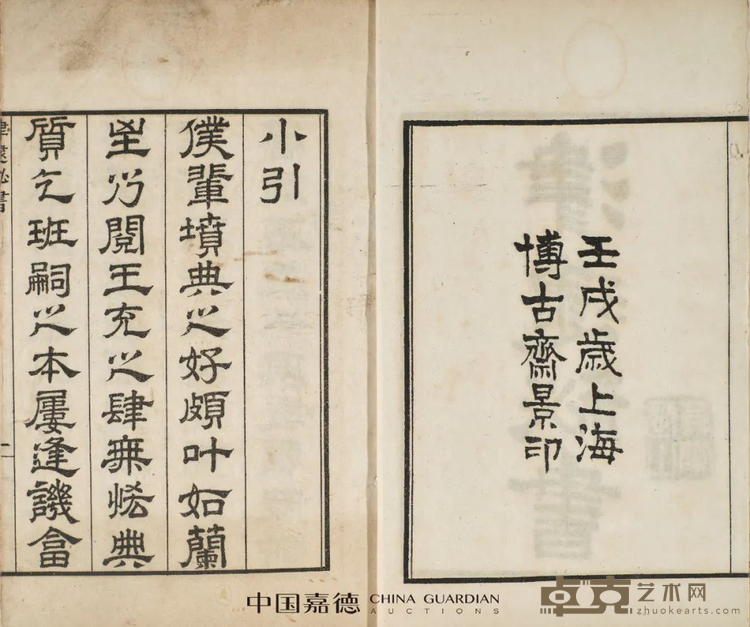 壬戌歲上海
博古齋景印
小引
僕輩墳典之好頗叶如蘭
閱王充之肆無典
質乞班嗣之本屢逢譏畣
津逮祕書
中国嘉德 CHINA GUARDIAN
AUCTIONS
卓克艺术网
zhuokearts.com